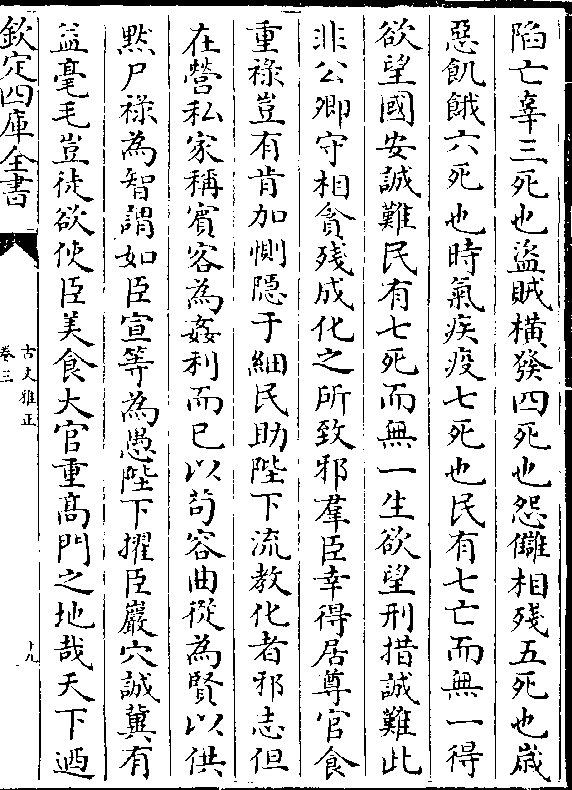 陷亡辜三死也盜賊橫發四死也怨讎相殘五死也歳
惡飢餓六死也時氣疾疫七死也民有七亡而無一得
欲望國安誠難民有七死而無一生欲望刑措誠難此
非公卿守相貪殘成化之所致邪羣臣幸得居尊官食
重祿豈有肯加惻隱于細民助陛下流教化者邪志但
在營私家稱賓客為姦利而已以茍容曲從為賢以供
黙尸祿為智謂如臣宣等為愚陛下擢臣巖穴誠冀有
益毫毛豈徒欲使臣美食大官重髙門之地哉天下迺
欽定四庫全書
古文雅正
卷三
十九